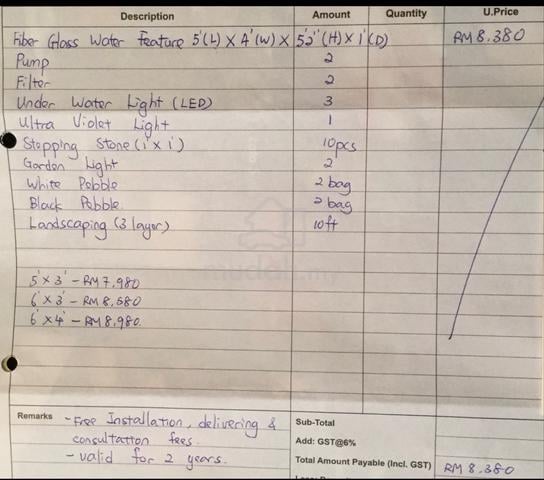 Description Amount Quantity U.Price
Fiber Glass Water Feature 5'(L) X 4'(W) X 5'2"(H) X 1'(D) RM 8.380
Pump 2
Filter 2
Under Water Light (LED) 3
Ultra Violet Light 1
Stepping Stone (1'x1') 10pcs
Garden Light 2
White Pebble 2 bag
Black Pebble. 2 bag
Landscaping (3 layer) 10ft
mudah.my
5' x 3' - RM 7,980
6' x 3' - RM 8,580
6' x 4' - RM 8,980.
Remarks - Free Installation, delivering & consultation fees.
- valid for 2 years.
Sub-Total
Add: GST@6%
Total Amount Payable (Incl. GST) RM 8.380